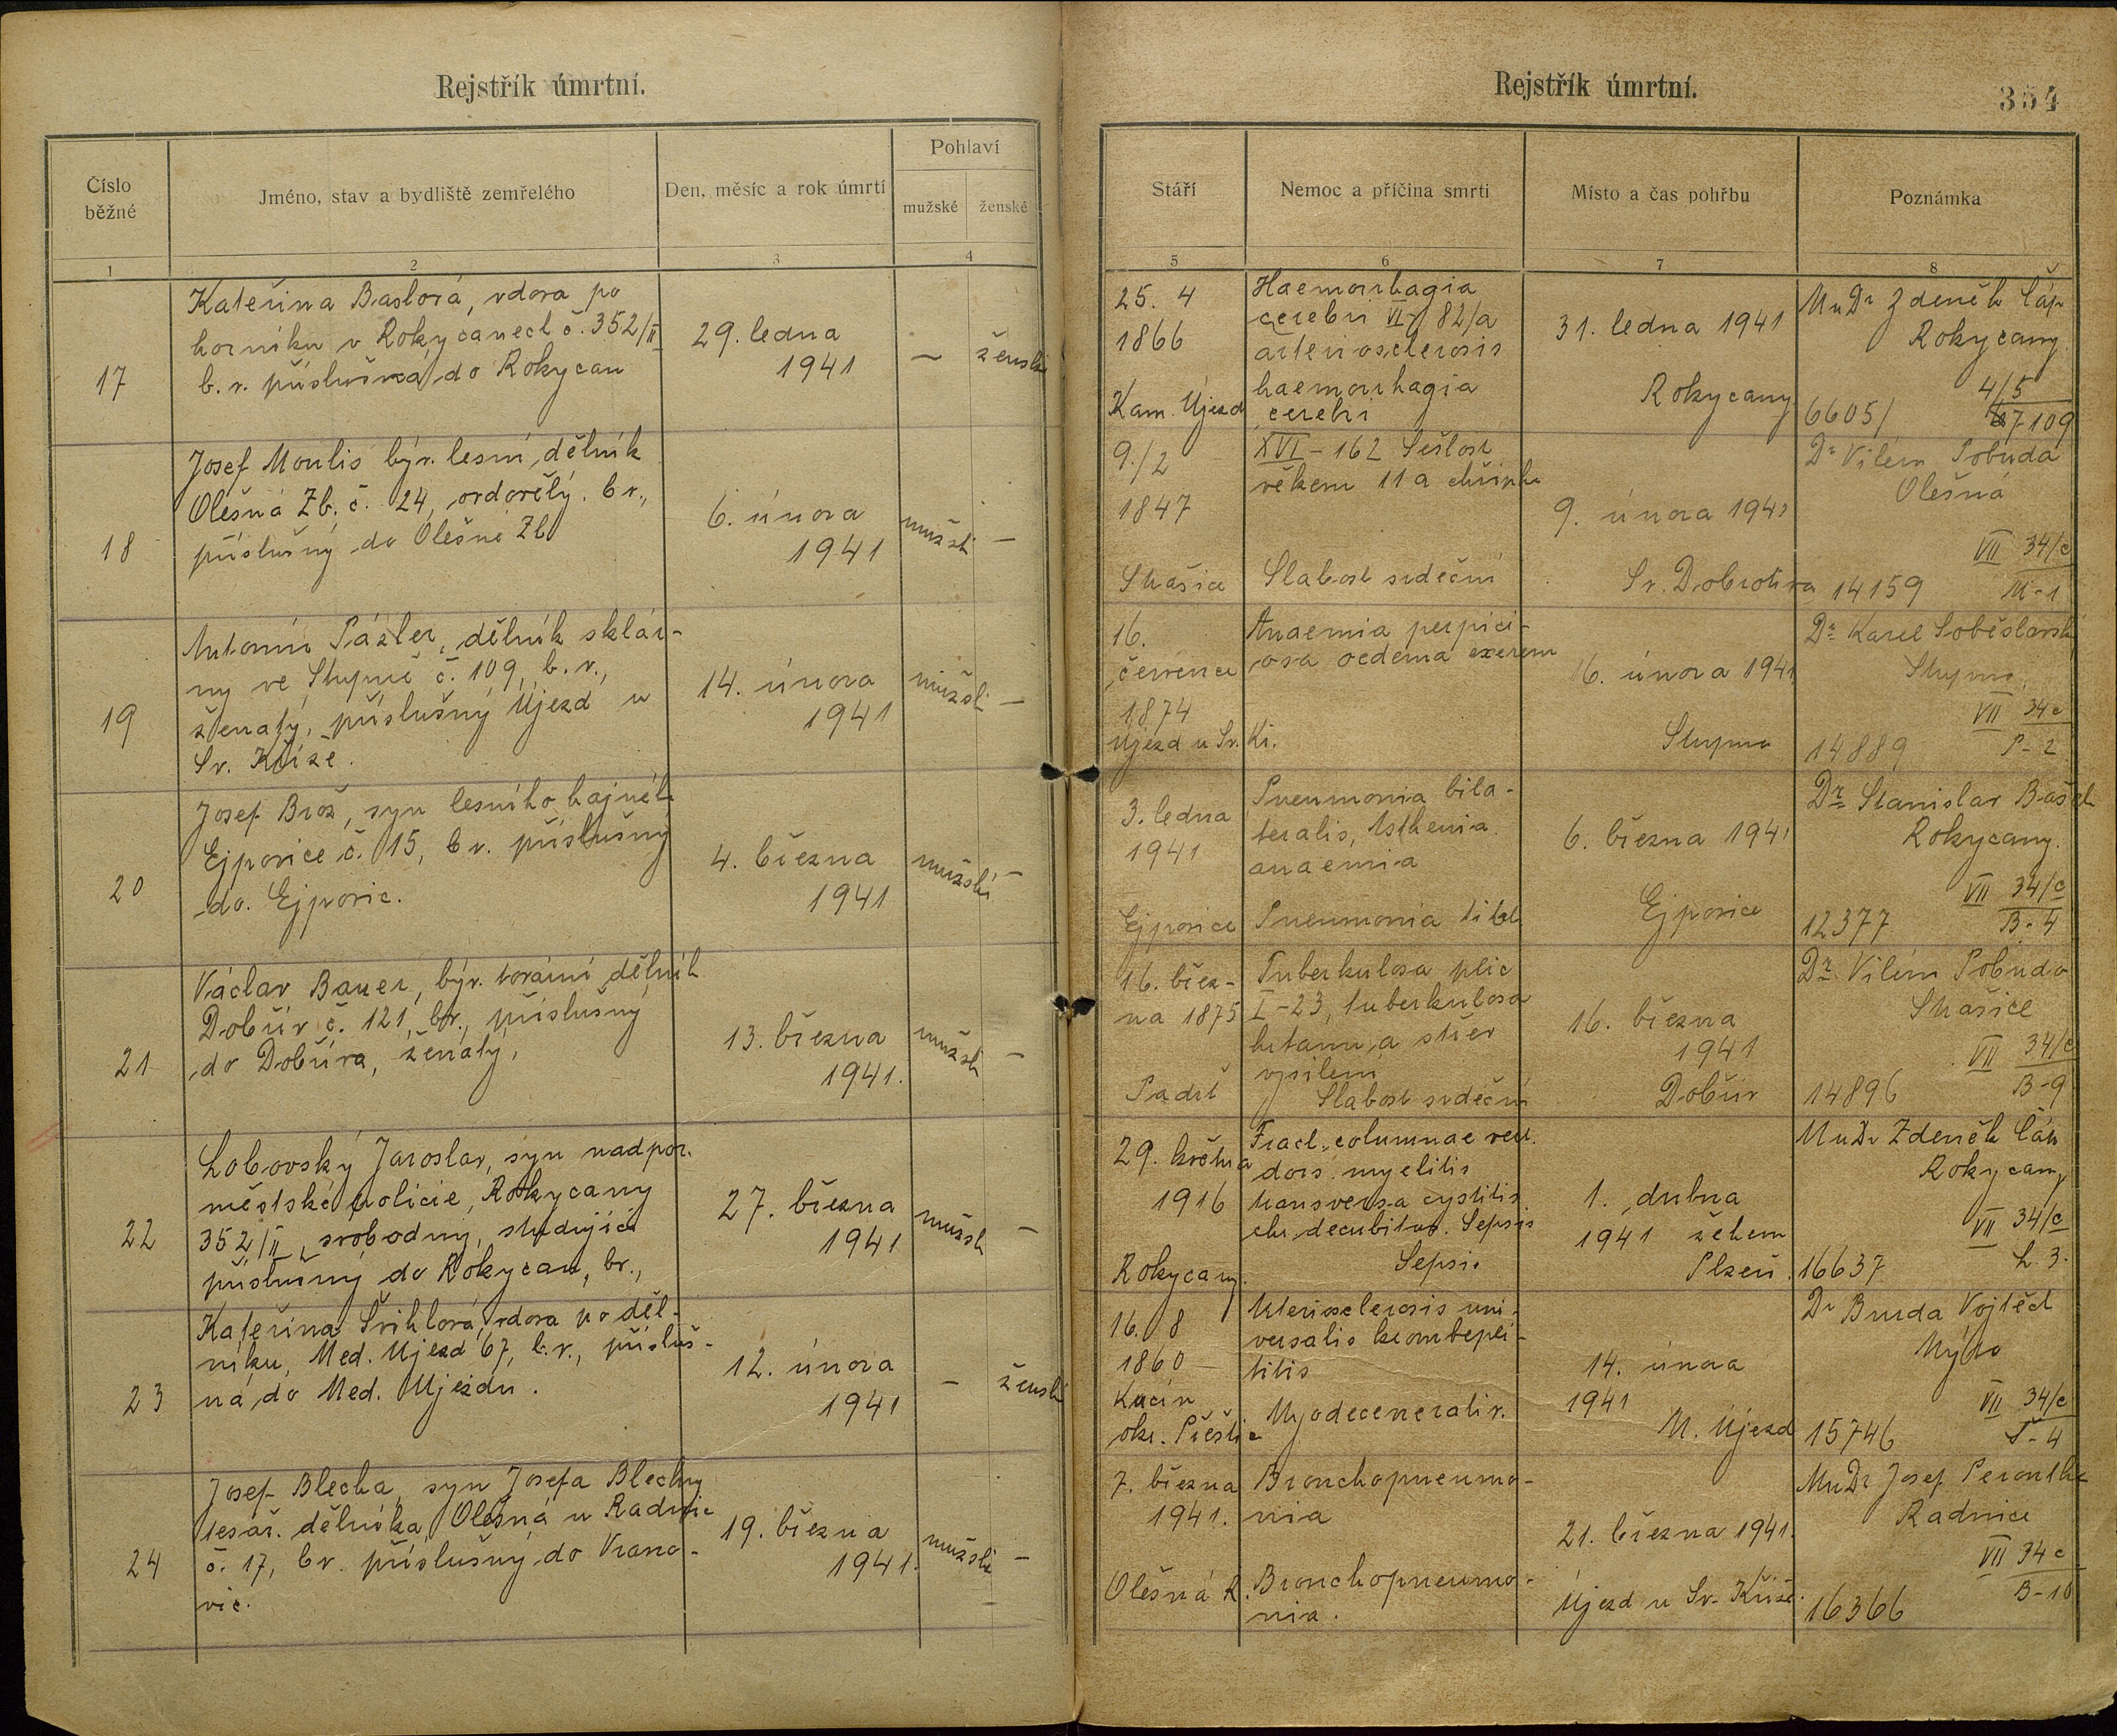 Rejstřík úmrtní.
Číslo
běžné
Jméno, stav a bydliště zemřelého
Den, měsíc a rok úmrtí
Pohlaví
mužské
ženské
1
2
3
4
17
Kateřina Baslová, vdova po
horníku v Rokycanech č. 352/II
b. v. příslušná do Rokycan
29. ledna
1941
–
žensk
18
Josef Moulis býv. lesní dělník
Olešná Zb. č. 24, ovdovělý. b v.,
příslušný do Olešné Zb
6. února
1941
mužsk
–
19
Antonín Pázler, dělník sklár-
ny ve Stupně č. 109, b. v.,
ženatý, příslušný Újezd u
Sv. Kříže.
14. února
1941
mužsk
–
20
Josef Brož, syn lesního hajného
Ejpovice č. 15, b v. příslušný
do. Ejpovic.
4. března
1941
mužské
–
21
Václav Bauer, býv. tovární dělník
Dobřív č. 121, bv., příslušný
do Dobříva, ženatý,
13. března
1941.
mužsk
–
22
Lobovský Jaroslav, syn nadpor.
městské policie, Rokycany
352/II, svobodný, studující
příslušný do Rokycan, bv.,
27. března
1941
mužsk
–
23
Kateřina Šrihlová vdova po děl-
níku, Med. Ujezd 67, b. v., přísluš-
ná do Med. Ujezdu.
12. února
1941
–
žensk
24
Josef Blecha, syn Josefa Blechy
tesař. dělníka, Olešná u Radnic
č. 17, bv. příslušný do Vrano-
vic.
19. března
1941.
mužsk
–
Rejstřík úmrtní.
354
Stáří
Nemoc a příčina smrti
Místo a čas pohřbu
Poznámka
5
6
7
8
25. 4
1866
Kam. Újezd
Haemorrhagia
cerebri VI 82/a
arteriosclerosis
haemorrhagia
cerebri
31. ledna 1941
Rokycany
MuDr Zdeněk Čáp
Rokycany
4/5
6605/
67109
9./2
1847
Strašice
XVI – 162 Sešlost
věkem 11 a chřipka
Slabost srdeční
9. února 1941
Sv. Dobrotiva
Dr Vilém Pobuda
Olešná
VII 34/c
14159
M-1
16.
července
1874
Ujezd u Sv. Kř.
Anaemia pernici-
osa oedema
16. února 1941
Stupno
Dr Karel Soběslavský
Stupno
VII 34 c
14889
P-2
3. ledna
1941
Ejpovice
Pneumonia bila-
teralis, Asthenia
anaemia
Pneumonia bilat
6. března 1941
Ejpovice
Dr. Stanislav Bašek
Rokycany.
VII 34/c
12377
B-4
16. břez-
na 1875
Padrť
Tuberkulosa plic
I-23, tuberkulosa
hrtanu a střev
vysílení
Slabost srdeční
16. března
1941
Dobřív
Dr. Vilém Pobuda
Strašice
VII 34/c
14896
B-9
29. května
1916
Rokycany.
Fract. columnae vert.
dors. myelitis
transversa cystitis
chr. decubitus. Sepsis
Sepsis
1. dubna
1941 žehem
Plzeň.
MuDr Zdeněk Čáp
Rokycany
VII 34/c
16637
L 3.
16. 8
1860
okr. Přeštic
Aterioscelerosis uni-
versalis
Myodegenerativ.
14. února
1941
M. Újezd
Dr Burda Vojtěch
Mýto
VII 34/c
15746
Š-4
7. března
1941.
Olešná R.
Bronchopneumo-
nia
Bronchopneumo-
nia.
21. března 1941.
Újezd u Sv. Kříže.
MuDr Josef Peroutka
Radnice
VII 34 c
16366
B-10